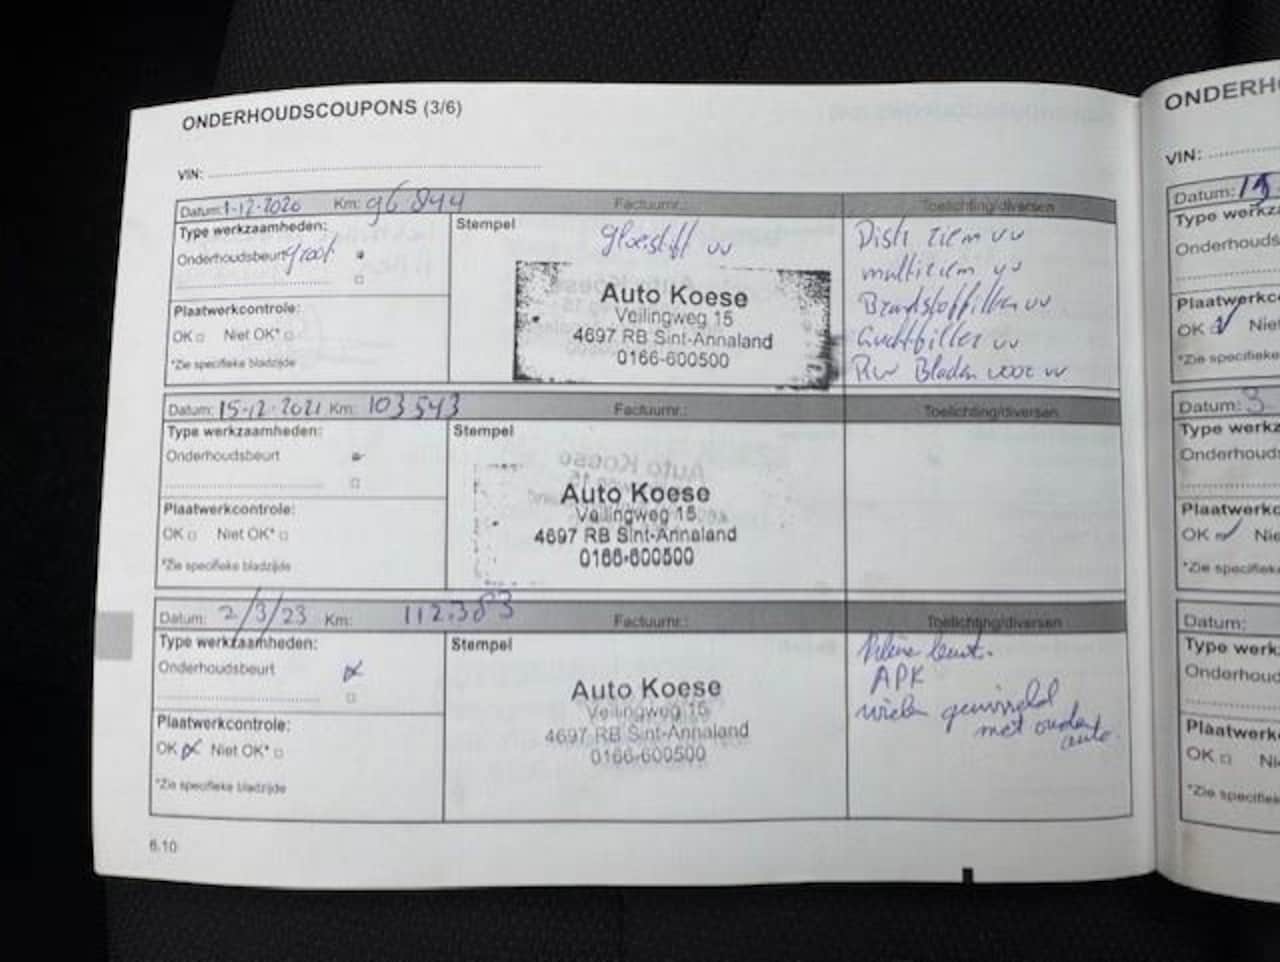 ONDERHOUDSCOUPONS (3/6)
VIN:
Datum: 1-12-2020 Km: 96 844 Factuurnr.: Toelichting/diversen
Type werkzaamheden:
Onderhoudsbeurt groot
Plaatwerkcontrole:
OK Niet OK*
*Zie specifieke bladzijde
Stempel
gloeistift vv
Auto Koese
Veilingweg 15
4697 RB Sint-Annaland
0166-600500
Distr. riem vv
multiriem vv
Brandstoffilter vv
Luchtfilter vv
Rw Bladen voor vv
Datum: 15-12-2021 Km: 103543 Factuurnr.: Toelichting/diversen
Type werkzaamheden:
Onderhoudsbeurt
Plaatwerkcontrole:
OK Niet OK*
*Zie specifieke bladzijde
Stempel
Auto Koese
Veilingweg 15
4697 RB Sint-Annaland
0166-600500
Datum: 2/3/23 Km: 112.383 Factuurnr.: Toelichting/diversen
Type werkzaamheden:
Onderhoudsbeurt
Plaatwerkcontrole:
OK Niet OK*
*Zie specifieke bladzijde
Stempel
Auto Koese
Veilingweg 15
4697 RB Sint-Annaland
0166-600500
kleine beurt.
APK
wielen gewisseld
met oude
auto.
6.10
ONDERH
VIN:
Datum:
Type werkz
Onderhouds
Plaatwerkc
OK Nie
*Zie specifieke
Datum: 3
Type werkz
Onderhoud
Plaatwerkc
OK Nie
*Zie specifiek
Datum:
Type werk
Onderhoud
Plaatwerk
OK Ni
*Zie specifiek